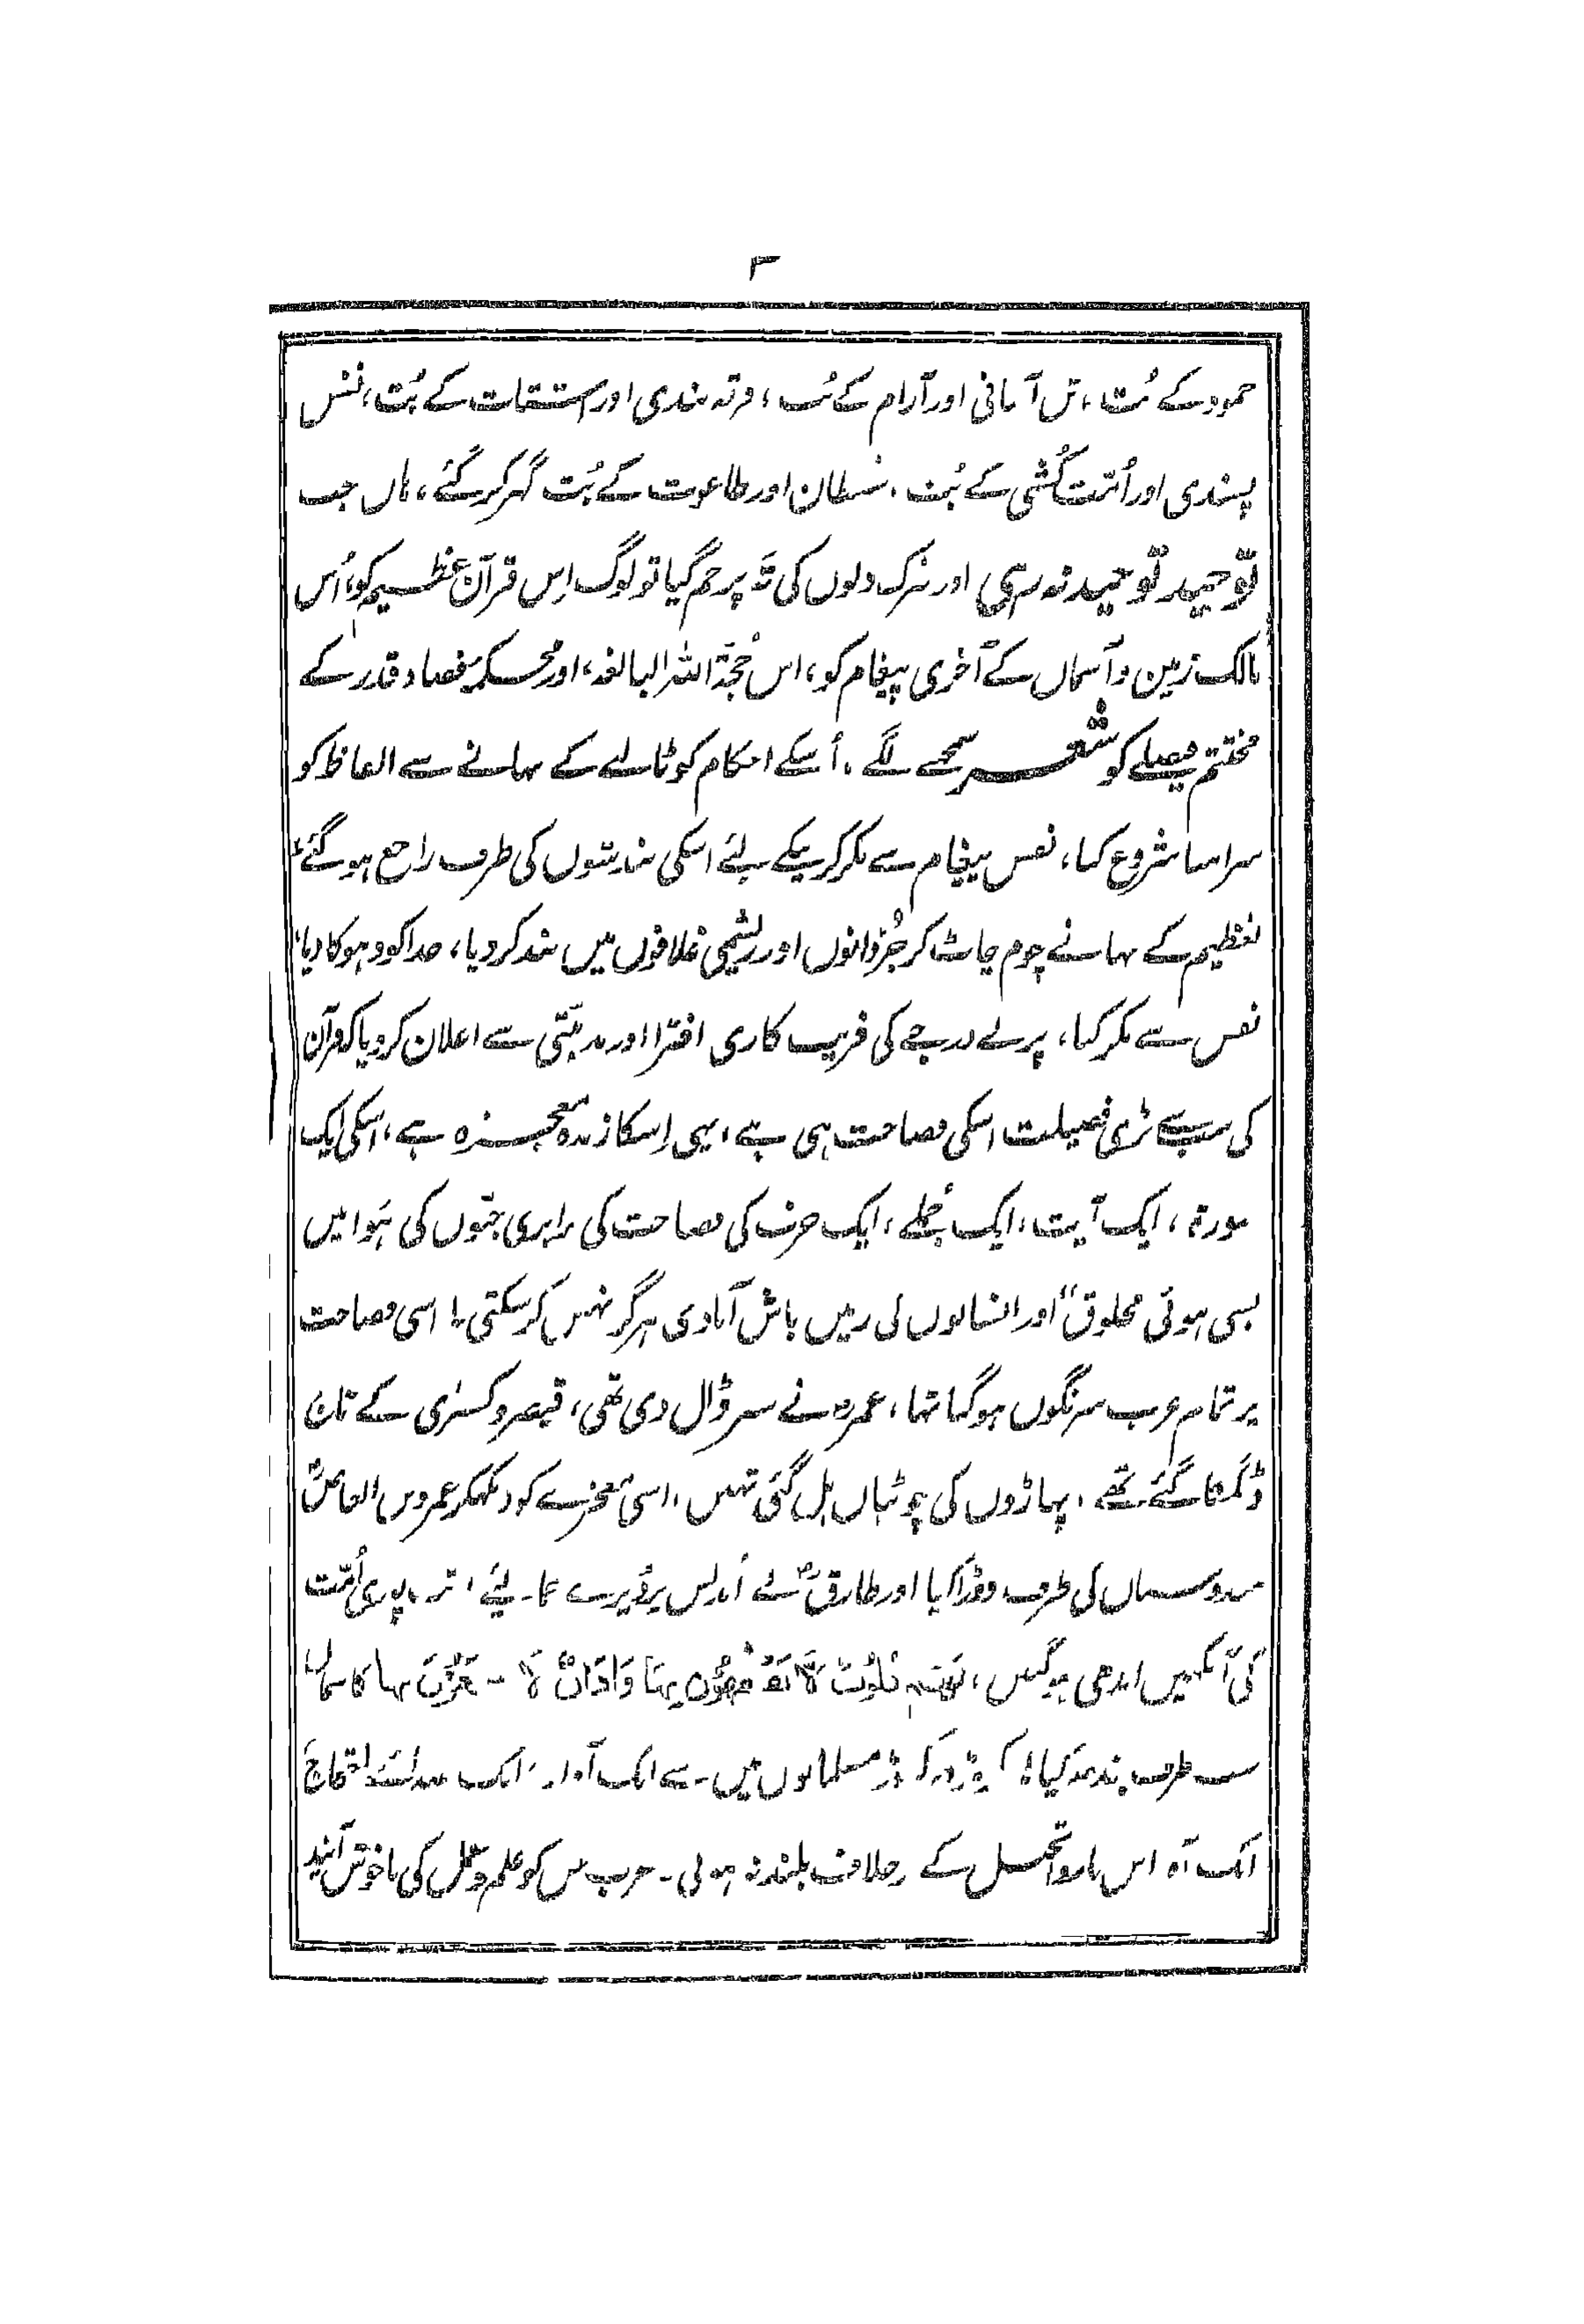 ۳
جمود کے بُت، تن آسانی اور آرام کے بُت، فرقہ بندی اور استقامت کے بُت، نفس
پسندی اور اُمّت کُشی کے بُت، شیطان اور طاغوت کے بُت گہر کر گئے، ہاں جب
توحید توحید نہ رہی اور شرک دلوں کی تہ پر جم گیا تو لوگ اِس قرآن عظیم کو، اُس
مالک زمین و آسمان کے آخری پیغام کو، اس حُجّۃ اللہ البالغہ، اور محکمۂ قضا و قدر کے
مختتم فیصلے کو شعر سمجھنے لگے۔ اُسکے احکام کو ٹالنے کے بہانے سے الفاظ کو
سراہنا شروع کیا، نفس پیغام سے مکر کرنیکے لئے اسکی بندشوں کی طرف راجع ہو گئے،
تعظیم کے بہانے چوم چاٹ کر جُزدانوں اور ریشمی غلافوں میں بند کر دیا، خدا کو دہوکا دیا،
نفس سے مکر کیا، پرلے درجے کی فریب کاری افترا اور بد نیّتی سے اعلان کر دیا کہ قرآن
کی سب سے بڑی فضیلت اسکی فصاحت ہی ہے، یہی اِسکا زندہ معجزہ ہے، اسکی ایک
سورۃ، ایک آیت، ایک جُملے، ایک حرف کی فصاحت کی برابری جنّوں کی ہَوا میں
بسی ہوئی مخلوق اور انسانوں کی زمیں باش آبادی ہرگز نہیں کر سکتی! اسی فصاحت
پر تمام عرب سرنگوں ہو گیا تھا، عمرؓ نے سر ڈال دی تھی، قیصر و کسریٰ کے تاج
ڈگمگا گئے تھے، پہاڑوں کی چوٹیاں ہل گئی تہیں، اسی معجزے کو دیکھکر عمرو بن العاصؓ
ہندوستان کی طرف دوڑا آیا اور طارقؓ نے اُندلس پر ڈیرے جما لئے، پوری اُمّت
کی آنکھیں اندھی ہو گئیں، لَهُمْ قُلُوبٌ لَّا يَفْقَهُونَ بِهَا وَاٰذَانٌ لَّا يَسْمَعُونَ بِهَا کا سماں
سب طرف بندھ گیا! کروڑ در کروڑ مسلمانوں میں سے ایک آواز، ایک صدائے احتجاج
ایک آہ اس ناروا تخیل کے خلاف بلند نہ ہوئی۔ عرب کو علم و عمل کی ناخوش آئند